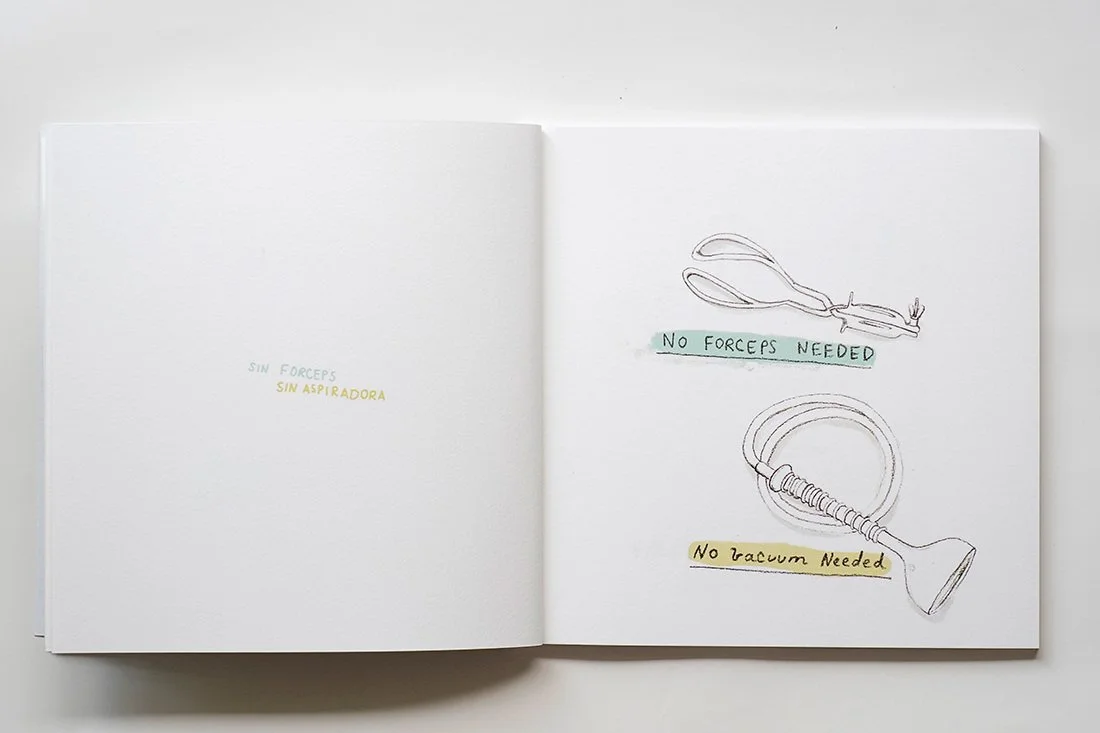 SIN FORCEPS
SIN ASPIRADORA
NO FORCEPS NEEDED
No Vacuum Needed